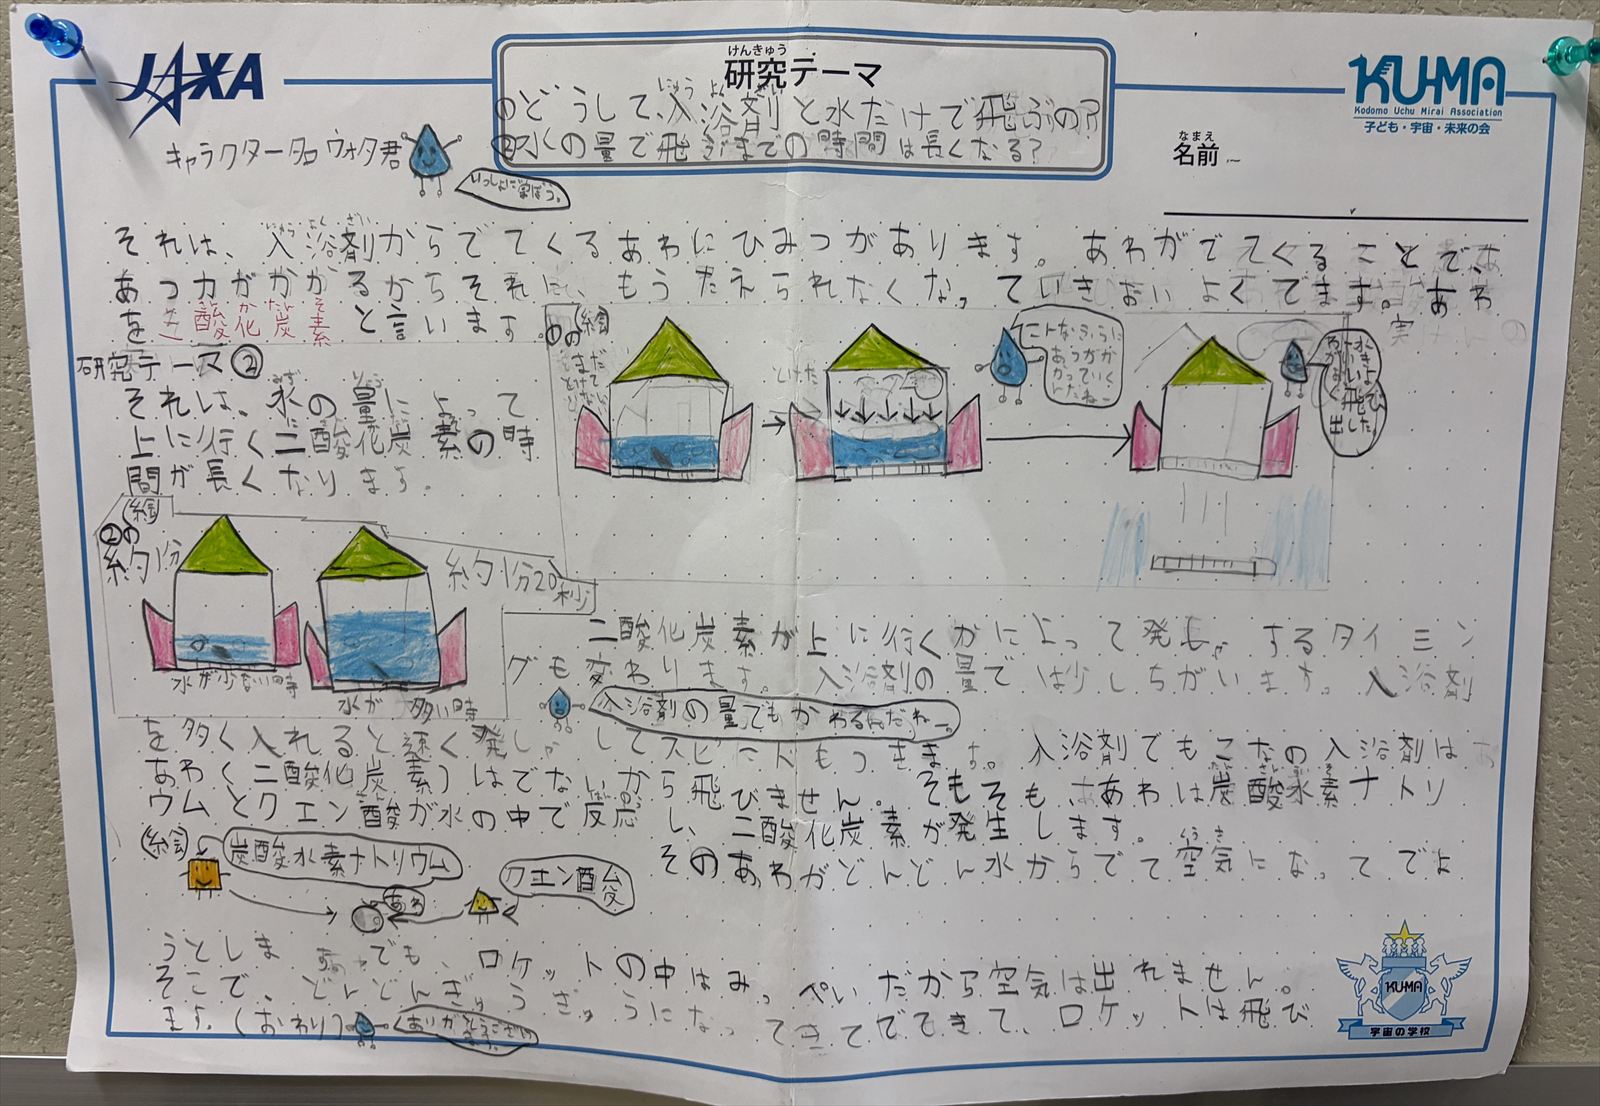 JAXA
けんきゅう
研究テーマ
①どうして、入浴剤と水だけで飛ぶの?
②水の量で飛ぶまでの時間は長くなる?
KUMA
Kodomo Uchu Mirai Association
子ども・宇宙・未来の会
なまえ
名前
キャラクター名 ウォタ君
いっしょに学ぼう。
それは、入浴剤からでてくるあわにひみつがあります。あわがでてくることで、
あつ力がかかるからそれに、もうたえられなくなっていきおいよくでます。あわ
を二酸化炭素と言います。
①の絵
研究テーマ②
それは。水の量によって
上に行く二酸化炭素の時
間が長くなります。
②の絵
約1分
約1分20秒
水が少ない時
水が多い時
こんなふうに
あつがか
かっていく
んだねー
二酸化炭素が上に行くかによって発しゃするタイミン
グも変わります。入浴剤の量では少しちがいます。入浴剤
入浴剤の量でもかわるんだねー。
を多く入れると速く発しゃしてスピードもつきます。入浴剤でもこなの入浴剤は
あわ(二酸化炭素)はでないから飛びません。そもそも、あわは炭酸水素ナトリ
ウムとクエン酸が水の中で反応し、二酸化炭素が発生します。
そのあわがどんどん水からでて空気になってでよ
絵
炭酸水素ナトリウム
あわ
クエン酸
うとします。でも、ロケットの中はみっぺいだから空気は出れません。
そこで、どんどんぎゅうぎゅうになってきてでてきて、ロケットは飛び
ます。(おわり)
ありがとうございます。
KUMA
宇宙の学校